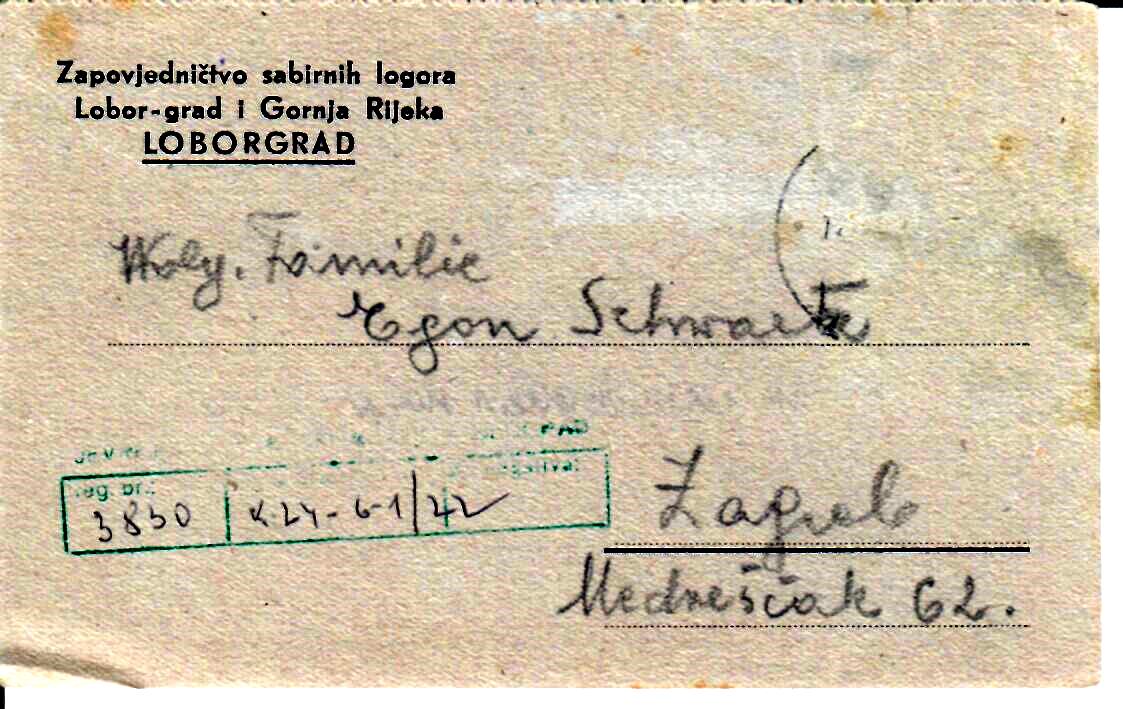 Zapovjedničtvo sabirnih logora
Lobor-grad i Gornja Rijeka
LOBORGRAD
Familie
Egon Schwartz
3850 K 24-6-1/42
Zagreb
Medveščak 62.